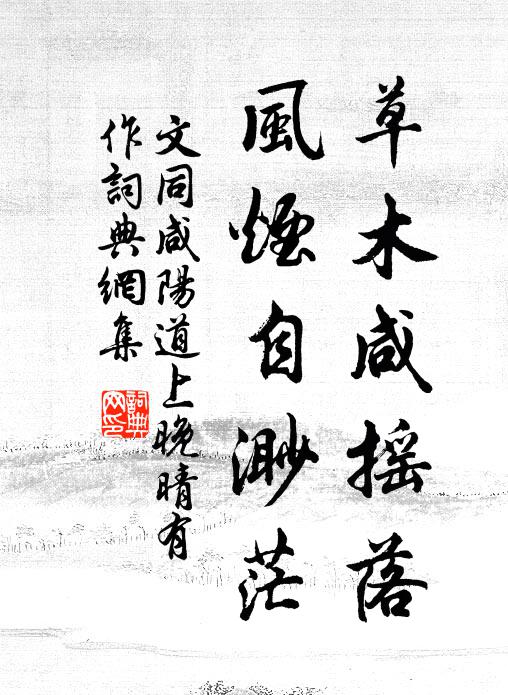 草木咸摇落
風煙自渺茫
文同咸陽道上晚晴有
作詞典網集
詞典
网印